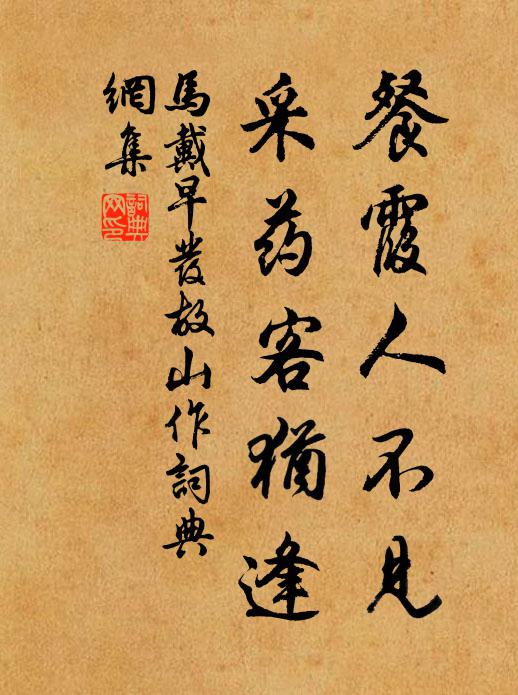 餐霞人不見
采药客猶逢
馬戴早發故山作詞典
網集
詞典
网印